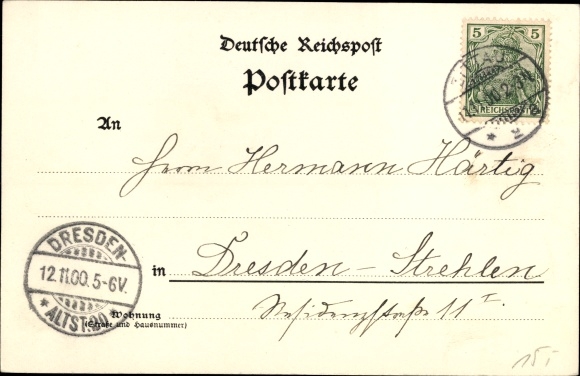 Deutsche Reichspost
Postkarte
5 5
REICHSPOST
ZITTAU
An
Herrn Hermann Härtig
DRESDEN-
12.11.00. 5-6V.
* ALTST.
in Dresden – Strehlen
Residenzstraße 11 I.
Wohnung
(Straße und Hausnummer)
15,-